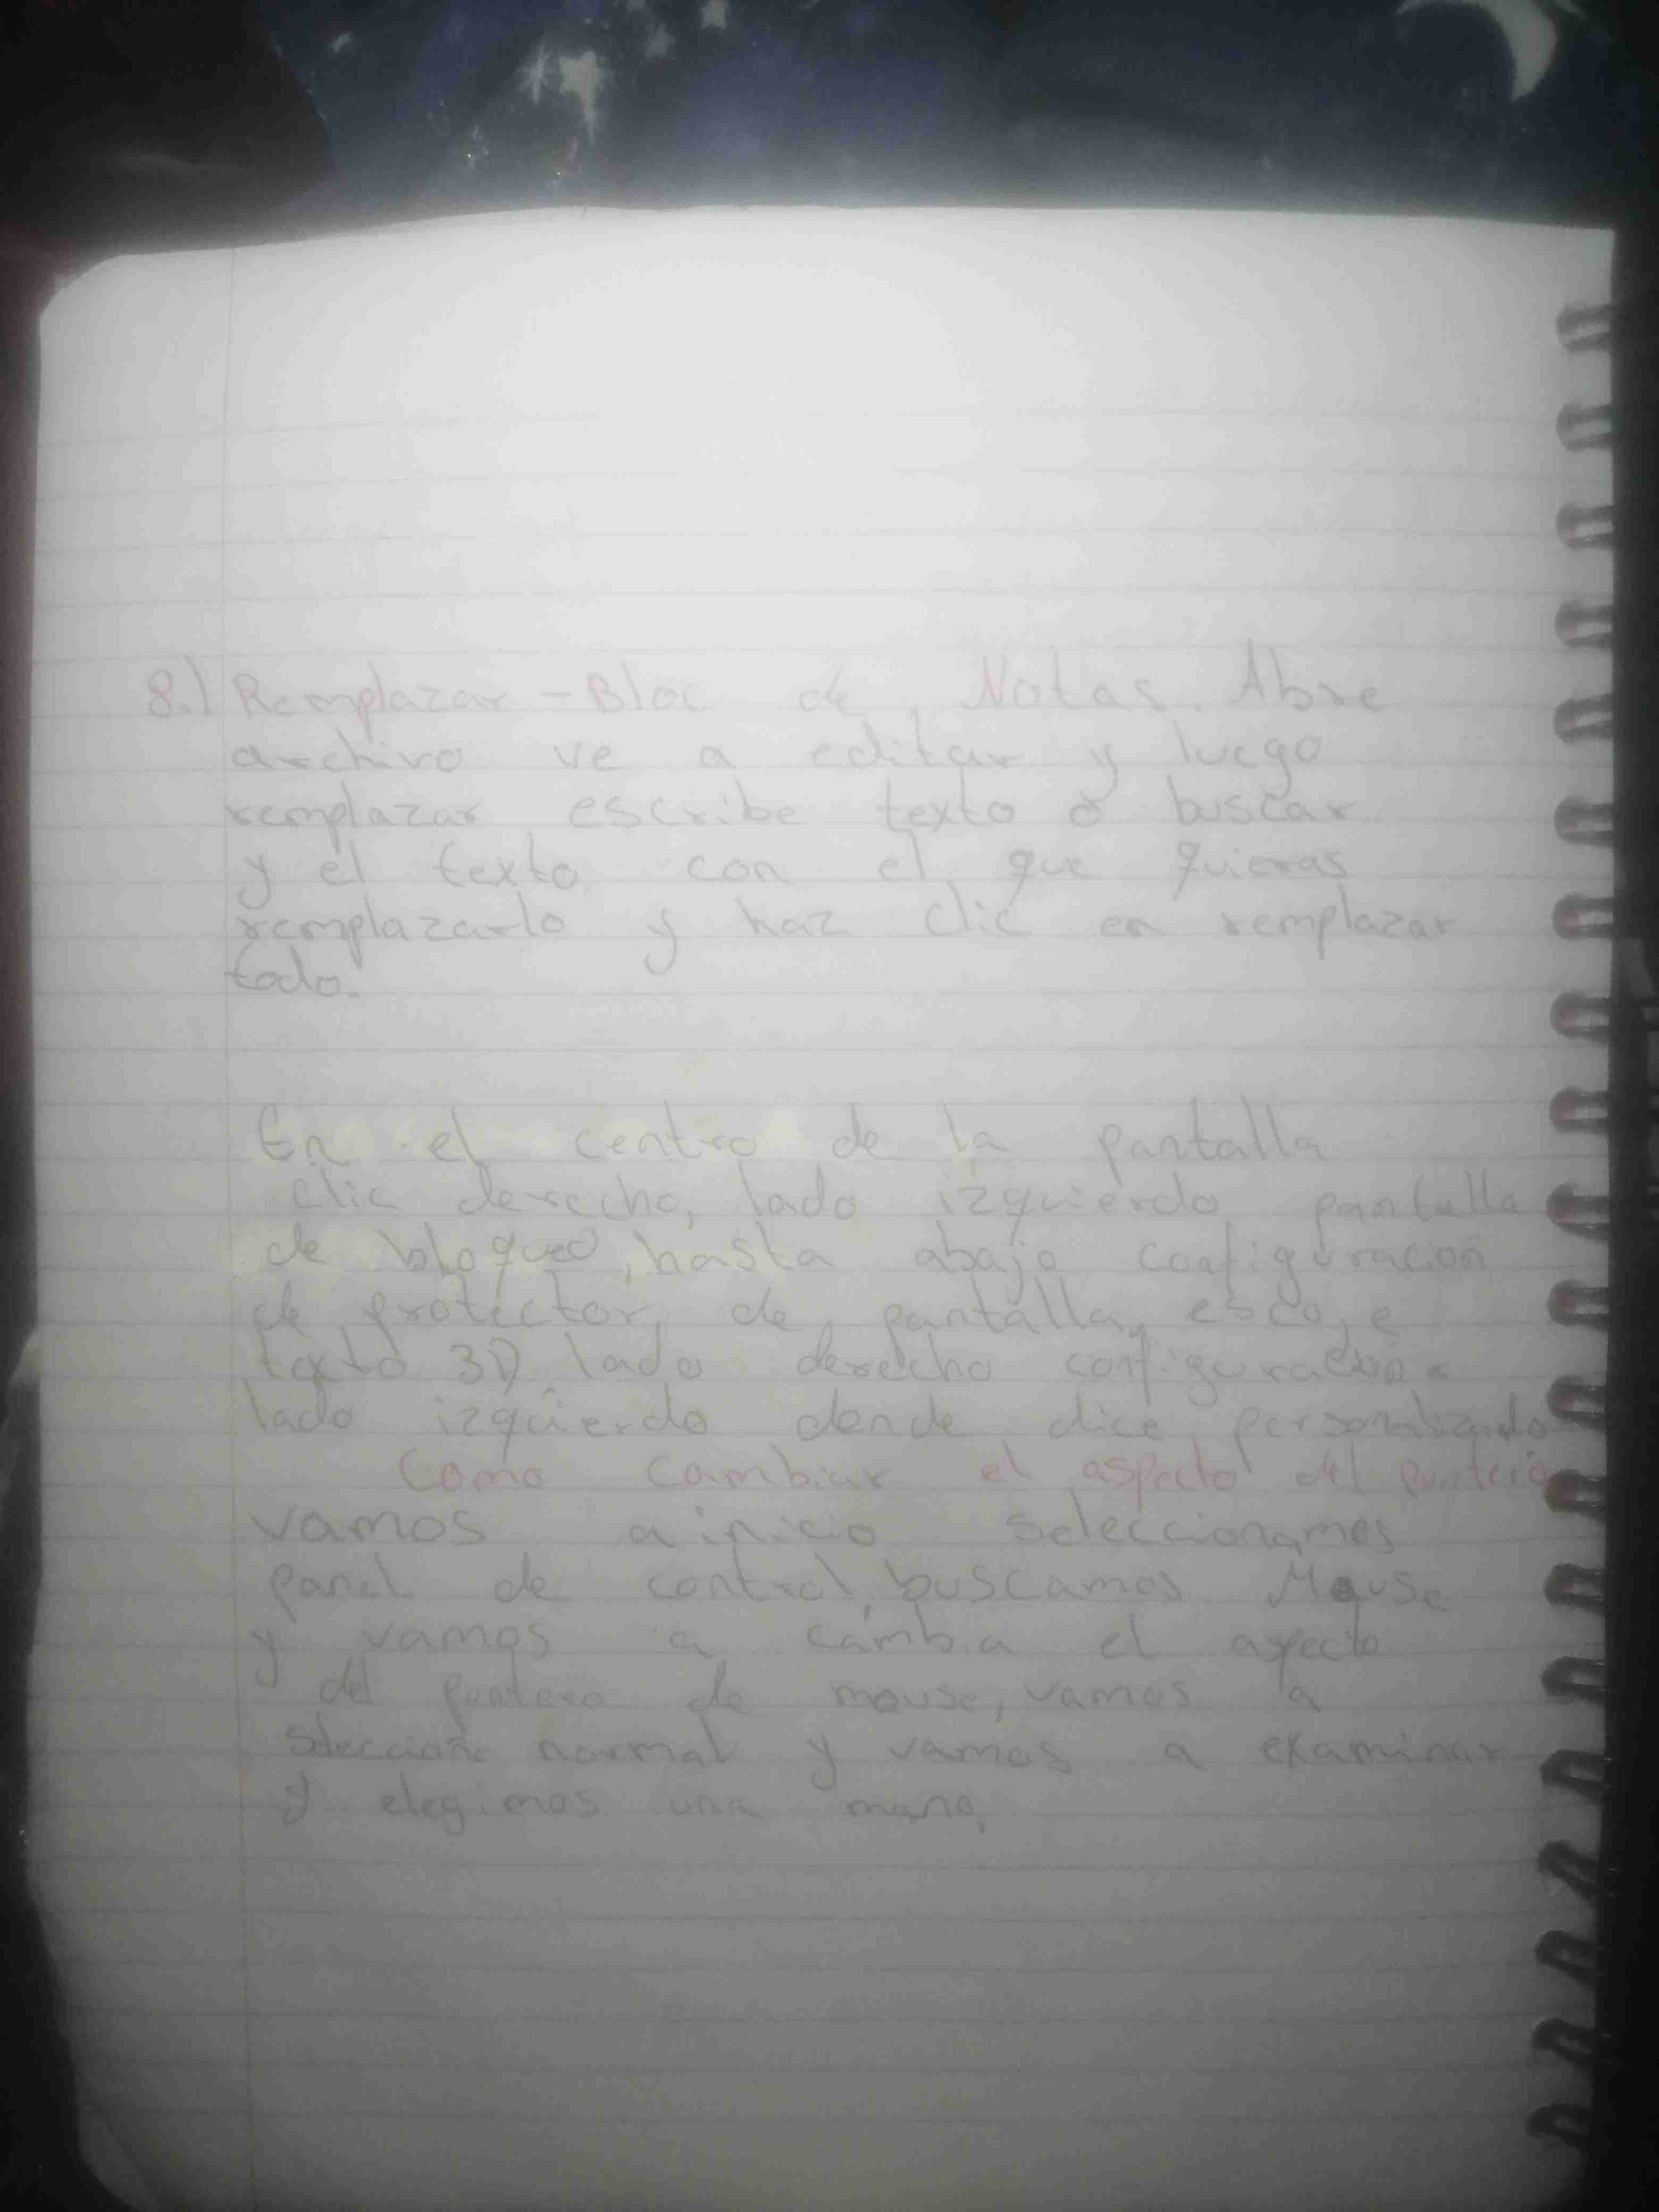 8.) Remplazar - Bloc de Notas. Abre
archivo ve a editar y luego
remplazar escribe texto o buscar
y el texto con el que quieras
remplazarlo y haz clic en remplazar
todo.
En el centro de la pantalla
clic derecho, lado izquierdo pantalla
de bloqueo, hasta abajo configuracion
de protector de pantalla, escoje
texto 3D lado derecho configuracion.
lado izquierdo donde dice personalizado
Como cambiar el aspecto del puntero
vamos a inicio seleccionamos
panel de control, buscamos Mouse
y vamos a cambia el aspecto
del puntero de mouse, vamos a
normal y vamos a examinar
y elegimos una mano.